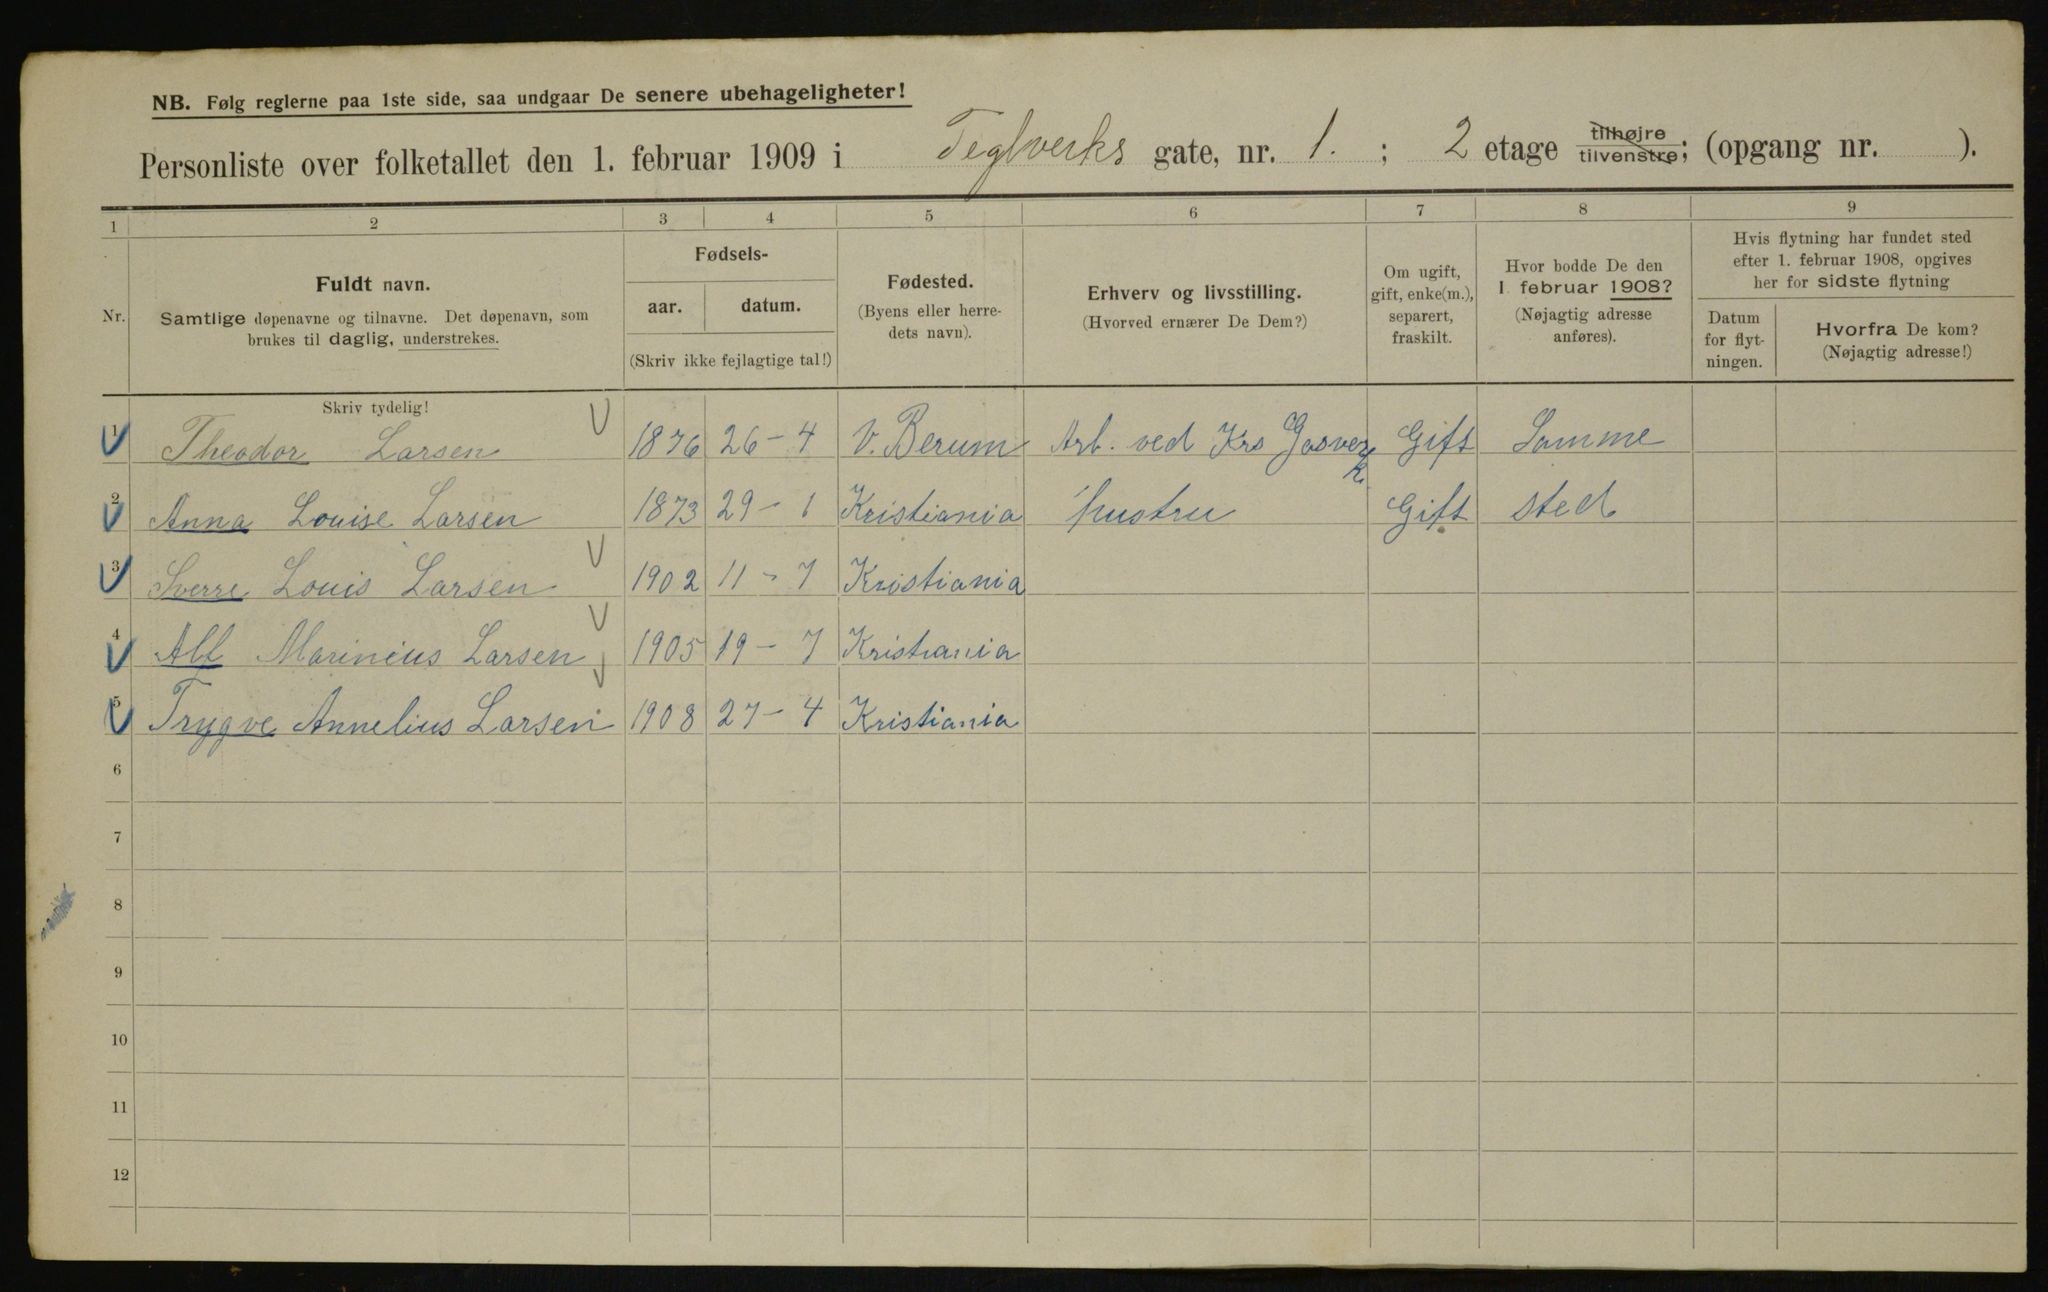 NB. Følg reglerne paa 1ste side, saa undgaar De senere ubehageligheter!
Personliste over folketallet den 1. februar 1909 i Teglverks gate, nr. 1. ; 2 etage tilhøjre tilvenstre; (opgang nr. ).
1 2 3 4 5 6 7 8 9
Nr.
Fuldt navn.
Samtlige døpenavne og tilnavne. Det døpenavn, som
brukes til daglig, understrekes.
Fødsels-
aar. datum.
(Skriv ikke fejlagtige tal!)
Fødested.
(Byens eller herre-
dets navn).
Erhverv og livsstilling.
(Hvorved ernærer De Dem?)
Om ugift,
gift, enke(m.),
separert,
fraskilt.
Hvor bodde De den
1. februar 1908?
(Nøjagtig adresse
anføres).
Hvis flytning har fundet sted
efter 1. februar 1908, opgives
her for sidste flytning
Datum
for flyt-
ningen.
Hvorfra De kom?
(Nøjagtig adresse!)
Skriv tydelig!
1 Theodor Larsen 1876 26 - 4 V. Berum Arb. ved Krs Gasverk. Gift Samme
2 Anna Louise Larsen 1873 29 - 1 Kristiania hustru Gift sted
3 Sverre Louis Larsen 1902 11 - 7 Kristiania
4 Alf Marinius Larsen 1905 19 - 7 Kristiania
5 Trygve Annelius Larsen 1908 27 - 4 Kristiania
6
7
8
9
10
11
12